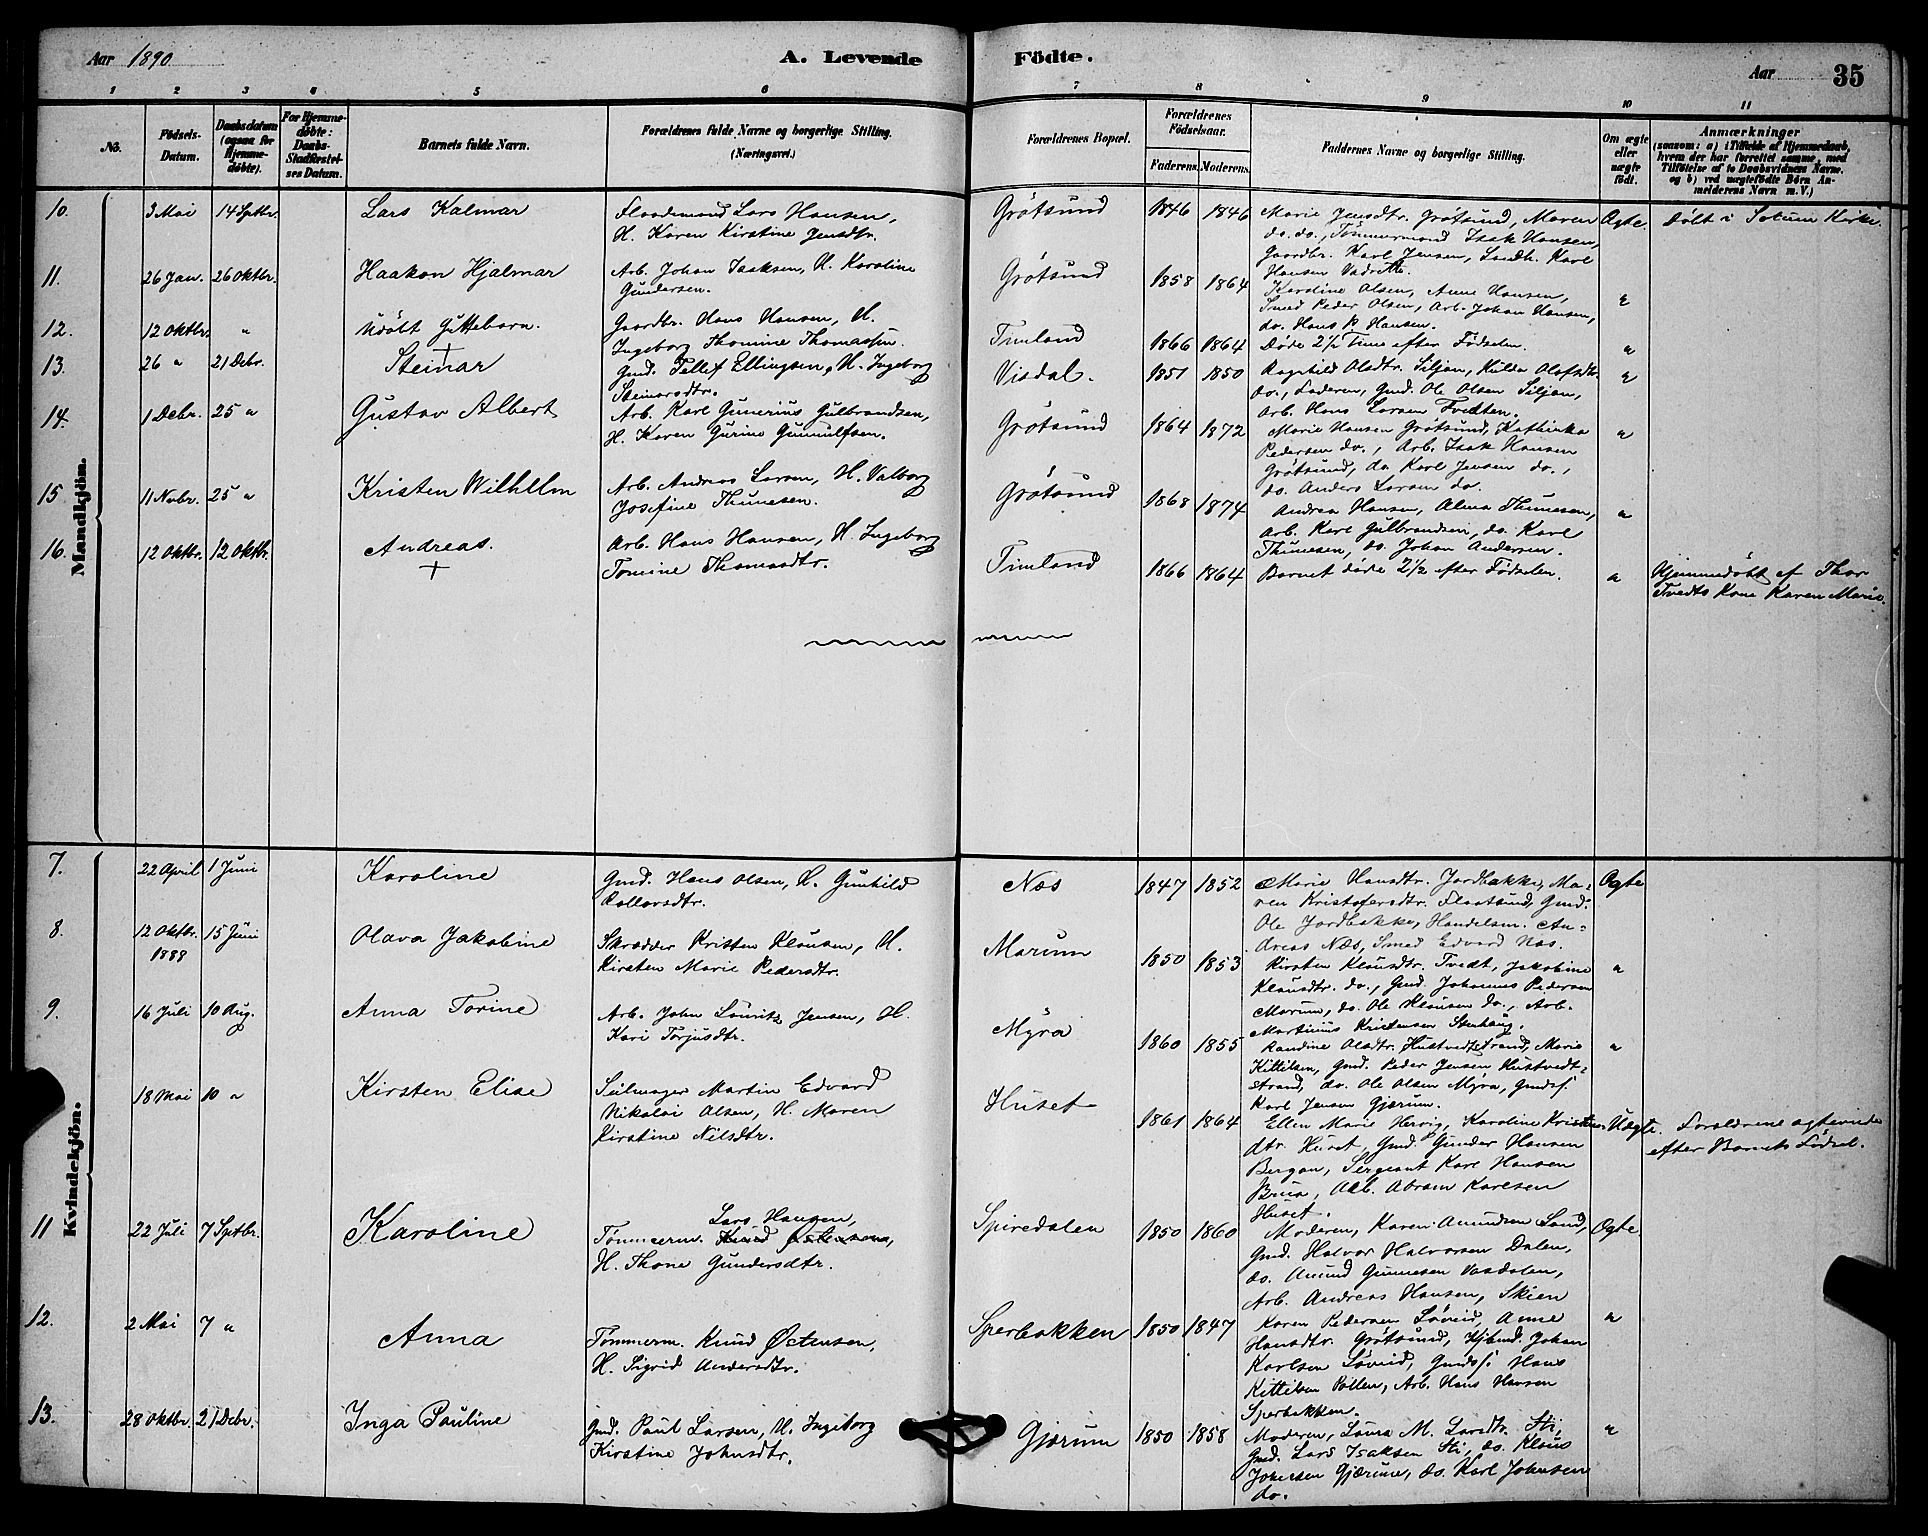 Aar 1890. A. Levende Födte. Aar 35
1 2 3 4 5 6 7 8 9 10 11
No.
Födsels-Datum.
Daabsdatum (ogsaa for Hjemmedöbte).
For Hjemmedöbte: Daabs-Stadfæstelses Datum.
Barnets fulde Navn.
Forældrenes fulde Navne og borgerlige Stilling. (Næringsvei.)
Forældrenes Bopæl.
Forældrenes Fødselsaar.
Faderens. Moderens.
Faddernes Navne og borgerlige Stilling.
Om ægte eller uægte födt.
Anmærkninger
(saasom: a) i Tilfælde af Hjemmedaab,
hvem der har forrettet samme, med
Tilföielse af to Daabsvidners Navne.
og b) ved uægtefödte Börn An-
melderens Navn m. V.)
Mandkjön.
10. 3 Mai 14 Sptbr. Lars Kalmar
Lars Hansen,
H. Karen Kirstine Jensdtr.
Grötsund 1846 1846
Marie Jensdtr. Grötsund, Maren
do. do., Tömmermand Isak Hansen,
Gaardbr. Karl Jensen, Karl
Hansen
Ægte. Döbt i Solum Kirke.
11. 26 Jan. 26 Oktbr. Haakon Hjalmar
Arb. Johan Isaksen, H. Karoline
Gundersen.
Grötsund 1858 1864
Karoline Olsen, Anne Hansen,
Smed Peder Olsen, Arb. Johan Hansen,
do. Hans P. Hansen.
"
12. 12 Oktbr. " Udöbt Guttebarn.
+
Gaardbr. Hans Hansen, H.
Ingeborg Thomine Thomassen.
Timland 1866 1864
Döde 2½ Time efter Födselen.
"
13. 26 " 21 Debr. Steinar
Gmd. Tellef Ellingsen, H. Ingeborg
Steinarsdtr.
Visdal. 1851 1850
Ragnhild Olsdtr. Siljan, Hilda Olafsdtr.
do., Faderen, Gmd. Ole Olsen Siljan,
Arb. Hans Larsen Tvedten.
"
14. 1 Debr. 25 " Gustav Albert
Arb. Karl Gunerius Gulbrandsen,
H. Karen Gurine Gunnulfsen.
Grötsund 1864 1872
Marie Hansen Grötsund, Kathinka
Pedersen do., Arb. Isak Hansen
Grötsund, do. Karl Jensen do.,
do. Anders Larsen do.
"
15 11 Novbr. 25 " Kristen Wilhelm
Arb. Andreas Larsen, H. Valborg
Josefine Thunesen.
Grötsund 1868 1874
Andrea Hansen, Alma Thunesen,
Arb. Karl Gulbrandsen, do. Karl
Thunesen, do. Johan Andersen.
"
16. 12 Oktbr. 12 Oktbr. Andreas.
+
Arb. Hans Hansen, H. Ingeborg
Tomine Thomasdtr.
Timland 1866 1864
Barnet döde 2½ efter Födselen.
"
Hjemmedöbt af Thor
Tvedts Kone Karen Marie.
Kvindekjön.
7. 22 April 1 Juni Karoline
Gmd. Hans Olsen, H. Gunhild
Næs 1847 1852
Marie Hansdtr. Jordbakke, Ma-
ren Kristofersdtr. Flaatsund, Gmd.
Ole Jordbakke, Handelsm. An-
dreas Næs, Smed Edvard Næs.
Ægte
8. 12 Oktbr. 1889 15 Juni Olava Jakobine
Skrædder Kristen Klausen, H.
Kirsten Marie Pedersdtr.
Marum 1850 1853
Kirsten Klausdtr. Tvedt, Jakobine
Klausdtr. do., Gmd. Johannes Pedersen
Marum, do. Ole Klausen do., Arb.
Martinus Kristensen Stenhaug.
"
9. 16 Juli 10 Aug. Anna Torine
Arb. John Lauritz Jensen, H.
Kari Torjusdtr.
Myra 1860 1855
Randine Olsdtr. Hustvedtstrand, Marie
Kittilsen, Gmd. Peder Jensen Hustvedt-
strand, do. Ole Olsen Myra, Gmdsf.
Karl Jensen Gjærum.
"
18 Mai 10 " Kirsten Elise
Seilmager Martin Edvard
Nikolai Olsen, H. Maren
Kirstine Nilsdtr.
Huset 1861 1864
Ellen Marie Hervig, Karoline Kristens-
dtr. Huset, Gmd. Gunder Hansen
Bergan, Sergeant Karl Hansen
Brua, Arb. Abram Karlsen
Huset.
Uægte.
Forældrene ægteviede
efter Barnets Födsel.
11 22 Juli 7 Sptbr. Karoline
Lars Hansen,
Tömmerm. Knud Östensen,
H. Thone Gundersdtr.
Spiredalen 1850 1860
Moderen, Karen Amundsen Lund,
Gmd. Halvor Halvorsen Dalen,
do. Amund Gunnesen Vasdalen,
Arb. Andreas Hansen, Skien
Ægte.
12. 2 Mai 7 " Anna
Tömmerm. Knud Östensen,
H. Sigrid Andersdtr.
Sperbakken 1850 1847
Karen Pedersen Löveid, Anne
Hansdtr. Grötsund, Johan
Karlsen Löveid, Gmdsf. Hans
Kittilsen Pollen, Arb. Hans Hansen
Sperbakken.
"
13. 28 Oktbr. 21 Debr. Inga Pauline
Gmd. Paul Larsen, H. Ingeborg
Kirstine Johnsdtr.
Gjærum 1850 1858
Moderen, Laura M. Larsdtr. Sti,
Gmd. Lars Isaksen Sti, do. Klaus
Johnsen Gjærum, do. Karl Johnsen
do.
"